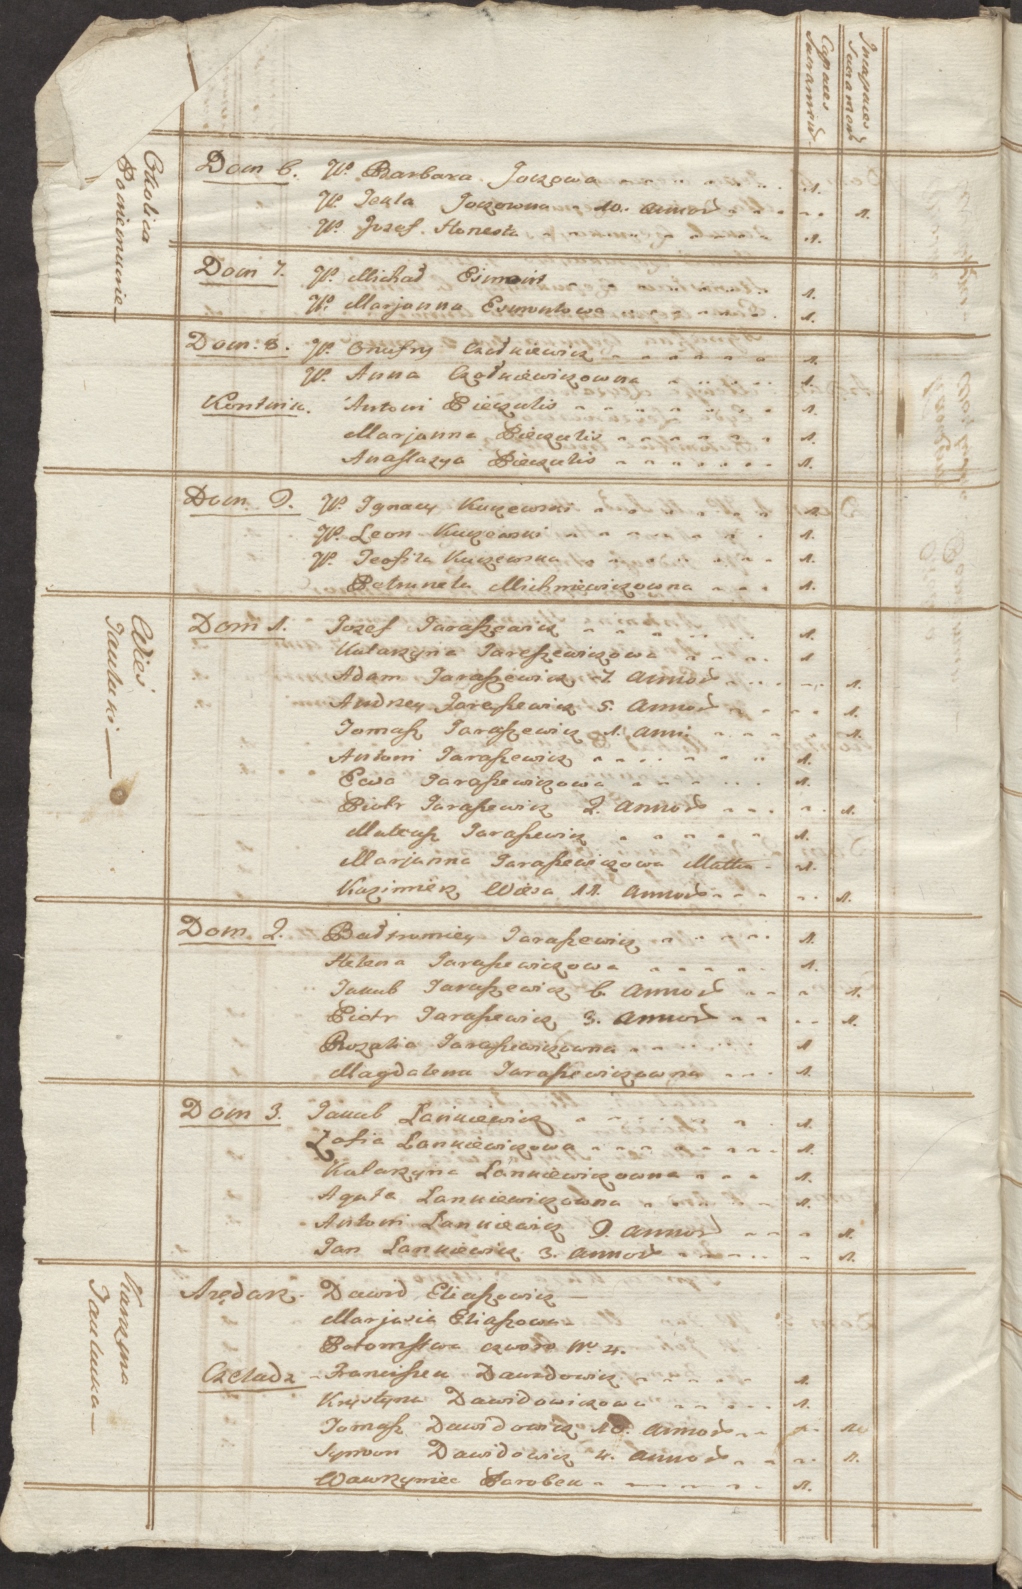 Capaces Sacramen.
Incapaces Sacramen.
Okolica Poniemunie
Dom 6. W. Barbara Joczowa 1.
W. Tekla Joczowna 10. annor 1.
W. Jozef Honesta 1.
Dom 7. W. Michał Esmont 1.
W. Marjanna Esmontowa 1.
Dom 8. W. Onufry Czołkiewicz 1.
W. Anna Czołkiewiczowna 1.
Kontnik. Antoni Pieczulis 1.
Marjanna Pieczulis 1.
Anastazya Pieczulis 1.
Dom 9. W. Ignacy Kuczewski 1.
W. Leon Kuczewski 1.
W. Teofila Kuczewska 1.
Petrunela Michniewiczowna 1.
Wieś Jauluki
Dom 1. Jozef Taraszewicz 1.
Katarzyna Taraszewiczowa 1.
Adam Taraszewicz 7. annor 1.
Andrzey Taraszewicz 5. annor 1.
Tomasz Taraszewicz 1. anni 1.
Antoni Taraszewicz 1.
Ewa Taraszewiczowa 1.
Piotr Taraszewicz 2. annor 1.
Mateusz Taraszewicz 1.
Marjanna Taraszewiczowa Matka 1.
Kazimierz Wiesa 11. annor 1.
Dom 2. Bałtromiey Taraszewicz 1.
Helena Taraszewiczowa 1.
Jakub Taraszewicz 6. annor 1.
Piotr Taraszewicz 3. annor 1.
Rozalia Taraszewiczowna 1
Magdalena Taraszewiczowna 1.
Dom 3. Jakub Lankiewicz 1.
Zofia Lankiewiczowa 1.
Katarzyna Lankiewiczowna 1.
Agata Lankiewiczowna 1.
Antoni Lankiewicz 9. annor 1.
Jan Lankiewicz 3. annor 1.
Karczma Jaulucka
Arędarz. Dawid Eliaszowicz
Marjasia Eliaszowa
Potomstwa czworo Nro 4.
Czeladz Franciszek Dawidowicz 1.
Krystyna Dawidowiczowa 1.
Tomasz Dawidowicz 10. annor
Symon Dawidowicz 4. annor 1.
Wawrzyniec Parobek 1.